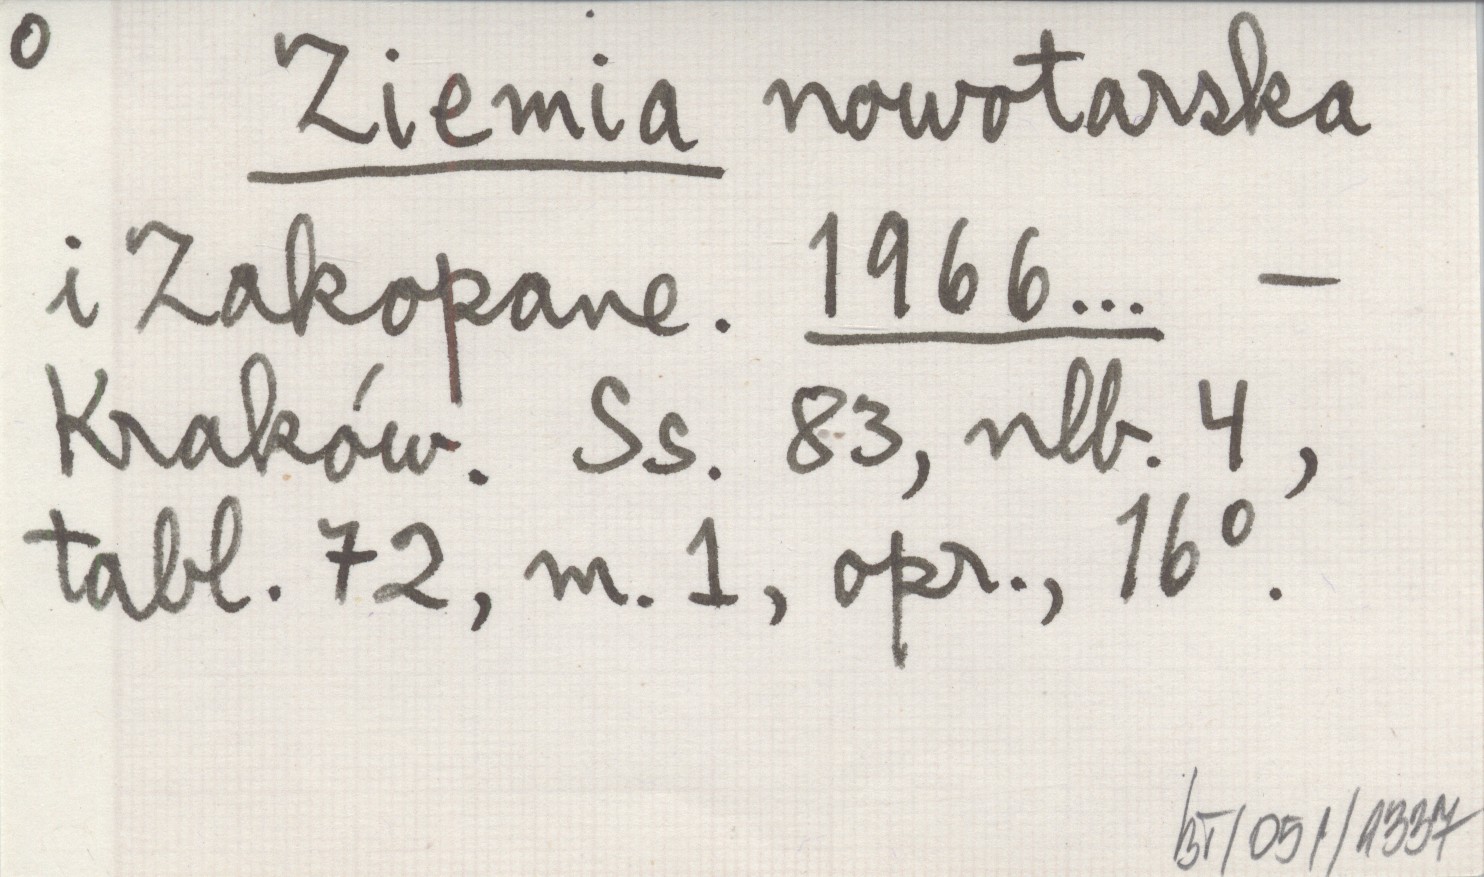 o Ziemia nowotarska
i Zakopane. 1966... —
Kraków. Ss. 83, nlb. 4,
tabl. 72, m. 1, opr., 16º.
BT/051/1337